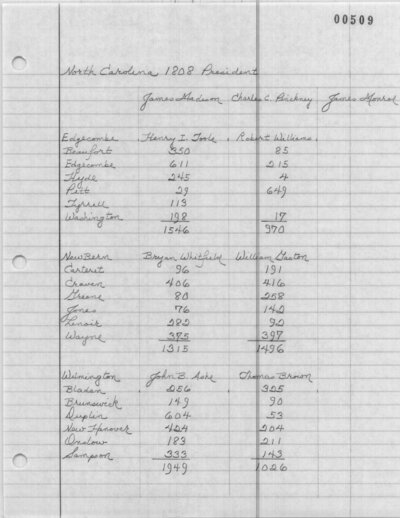 00509
North Carolina 1808 President
James Madison Charles C. Pinckney James Monroe
Edgecombe Henry I. Toole Robert Williams
Beaufort 350 85
Edgecombe 611 215
Hyde 245 4
Pitt 29 649
Tyrrell 113
Washington 198 17
1546 970
New Bern Bryan Whitfield William Gaston
Carteret 96 191
Craven 406 416
Greene 80 258
Jones 76 142
Lenoir 282 92
Wayne 375 397
1315 1496
Wilmington John B. Ashe Thomas Brown
Bladen 256 325
Brunswick 149 90
Duplin 604 53
New Hanover 424 204
Onslow 183 211
Sampson 333 143
1949 1026